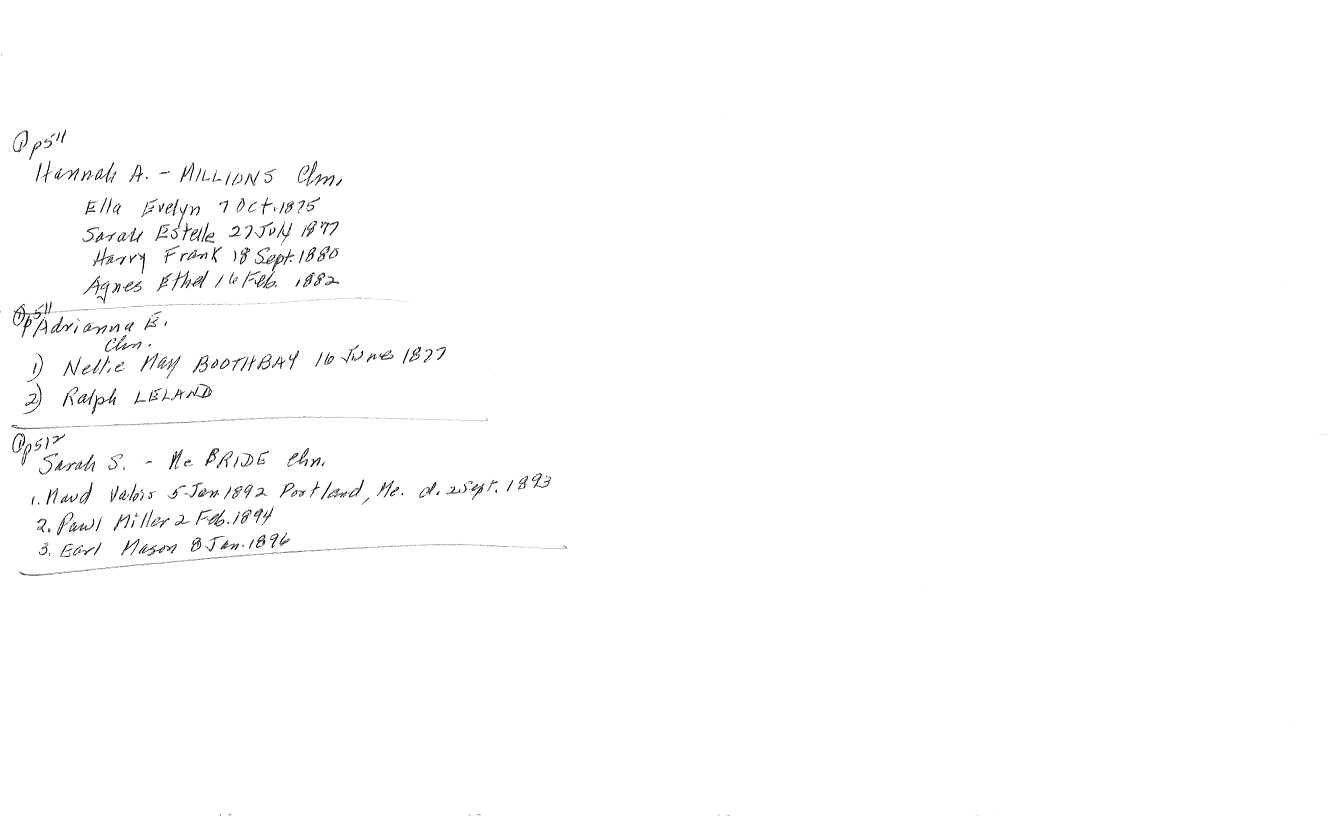 ① p511
Hannah A. - MILLIONS Chn.
Ella Evelyn 7 Oct. 1875
Sarah Estelle 27 July 1877
Harry Frank 18 Sept. 1880
Agnes Ethel 16 Feb. 1882
① p511
Adrianna E.
Chn.
1) Nellie May BOOTHBAY 16 June 1877
2) Ralph LELAND
① p512
Sarah S. - Mc BRIDE Chn.
1. Maud Valois 5 Jan 1892 Portland, Me. d. 2 Sept. 1893
2. Pawl Miller 2 Feb. 1894
3. Earl Mason 8 Jan. 1896